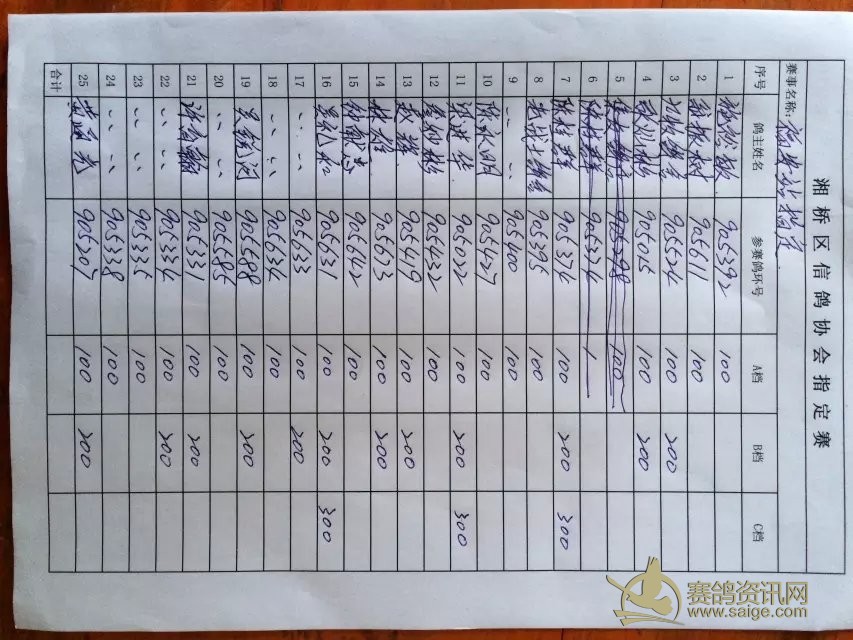 湘桥区信鸽协会指定赛
赛事名称：福安站指定
序号 鸽主姓名 参赛鸽环号 A档 B档 C档
1 905392 100
2 905611 100
3 905524 100 200
4 905015 100 200
5 100
6 905374 1
7 陈桂群 905374 100 200 300
8 905395 100
9 〃 〃 905400 100
10 陈永明 905427 100
11 洪进华 905022 100 200 300
12 905432 100
13 赵辉 905419 100 200
14 林雄 905673 100 200
15 905642 100
16 吴礼和 905631 100 200 300
17 〃 〃 905633 100 200
18 〃 〃 905634 100
19 905688 100 200
20 〃 〃 905685 100
21 905331 100 200
22 〃 〃 905334 100 200
23 〃 〃 905335 100
24 〃 〃 905338 100
25 905307 100 200
合计
赛鸽资讯网
www.saige.com